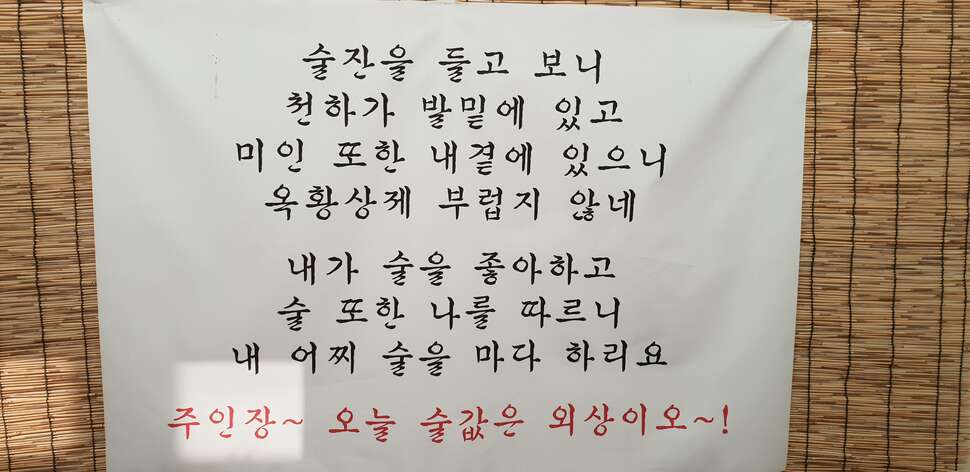 술잔을 들고 보니
천하가 발밑에 있고
미인 또한 내곁에 있으니
옥황상제 부럽지 않네
내가 술을 좋아하고
술 또한 나를 따르니
내 어찌 술을 마다 하리요
주인장~ 오늘 술값은 외상이오~!